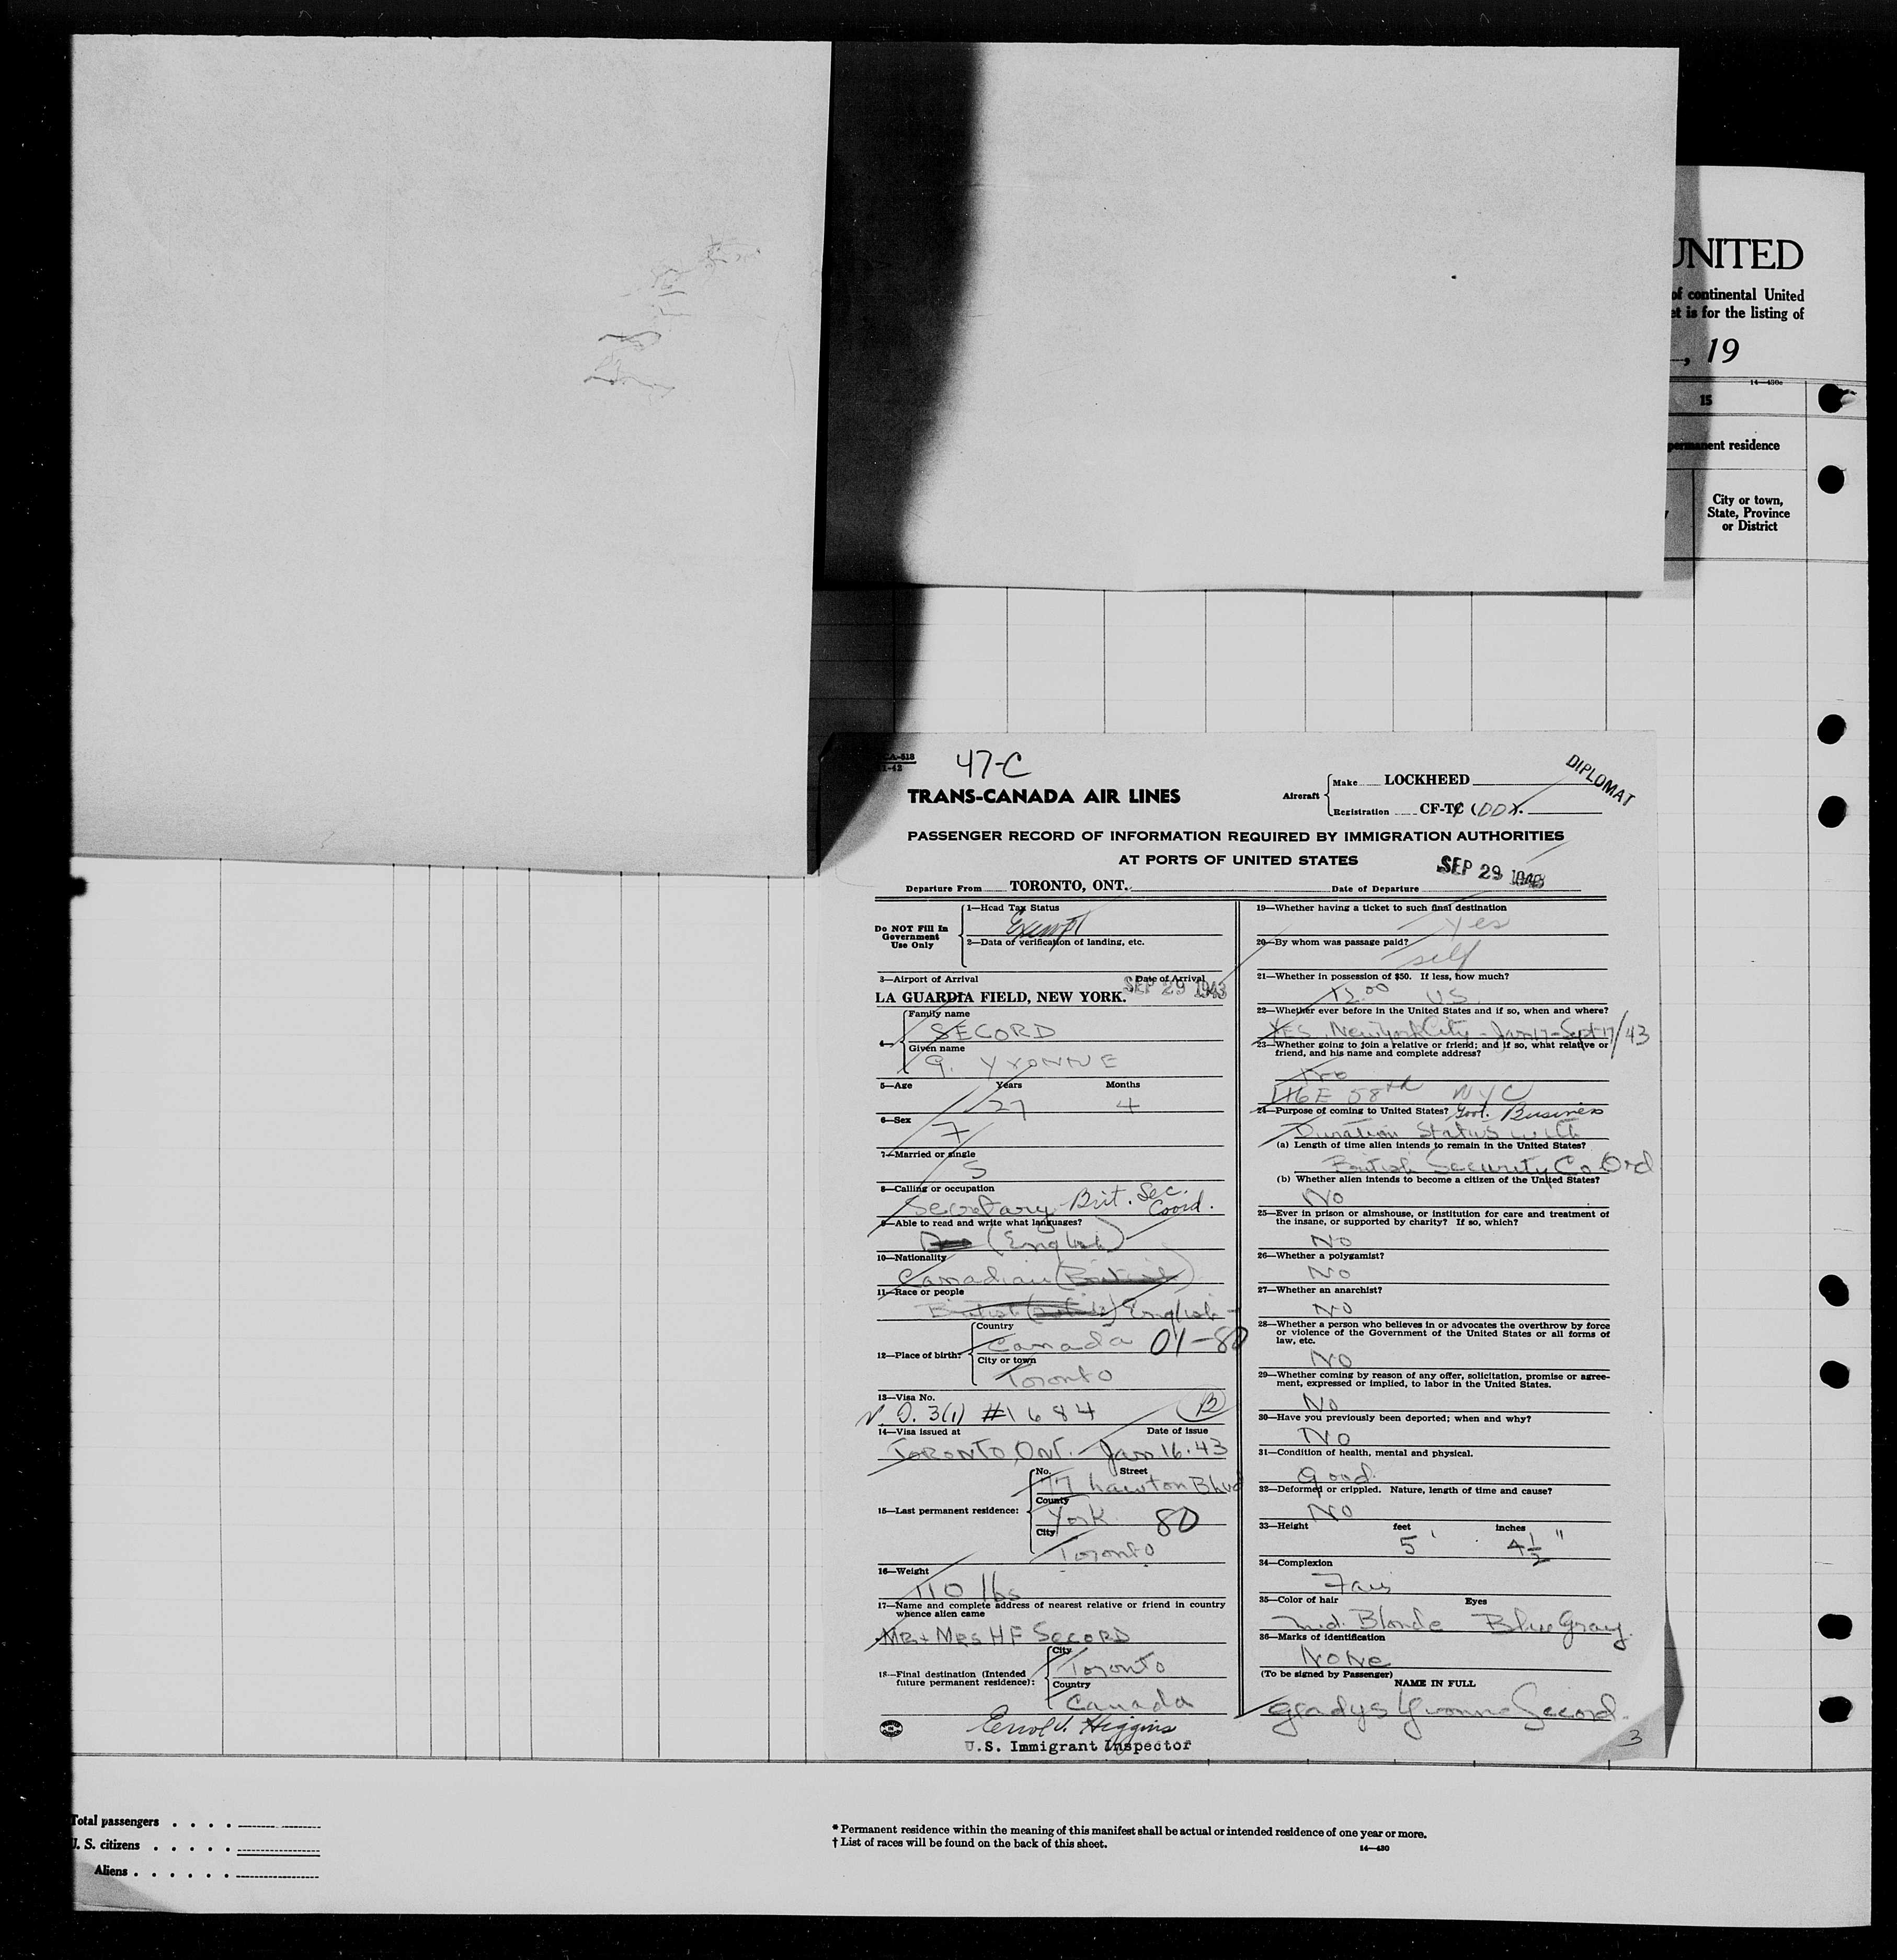 UNITED
of continental United
et is for the listing of
, 19
14—430c
15
permanent residence
City or town,
State, Province
or District
CA-618
1-42
47-C
DIPLOMAT
TRANS-CANADA AIR LINES
Aircraft
Make LOCKHEED
Registration CF-TC (DD).
PASSENGER RECORD OF INFORMATION REQUIRED BY IMMIGRATION AUTHORITIES
AT PORTS OF UNITED STATES
Departure From TORONTO, ONT. Date of Departure SEP 29 1943
Do NOT Fill In
Government
Use Only
1—Head Tax Status
Exempt
2—Data of verification of landing, etc.
3—Airport of Arrival Date of Arrival
LA GUARDIA FIELD, NEW YORK. SEP 29 1943
4—
Family name
SECORD
Given name
G. YVONNE
5—Age Years Months
27 4
6—Sex
F
7—Married or single
S
8—Calling or occupation
Secretary - Brit. Sec. Coord.
9—Able to read and write what languages?
(English)
10—Nationality
Canadian (British)
11—Race or people
British English
12—Place of birth:
Country
Canada 01-80
City or town
Toronto
13—Visa No.
V. O. 3(1) #1684 B
14—Visa issued at Date of issue
TORONTO, ONT. Jan 16.43
15—Last permanent residence:
No. Street
77 Lawton Blvd
County
York 80
City
Toronto
16—Weight
110 lbs
17—Name and complete address of nearest relative or friend in country
whence alien came
MR + MRS HF SECORD
18—Final destination (Intended
future permanent residence):
City
Toronto
Country
Canada
Errol J. Higgins
U.S. Immigrant Inspector
19—Whether having a ticket to such final destination
Yes
20—By whom was passage paid?
self
21—Whether in possession of $50. If less, how much?
00 U.S.
22—Whether ever before in the United States and if so, when and where?
YES New York City - Jan 17 - Sept 17/43
23—Whether going to join a relative or friend; and if so, what relative or
friend, and his name and complete address?
No
116 E 58th NYC
24—Purpose of coming to United States? Govt. Business
Duration Status with
(a) Length of time alien intends to remain in the United States?
British Security Co Ord
(b) Whether alien intends to become a citizen of the United States?
No
25—Ever in prison or almshouse, or institution for care and treatment of
the insane, or supported by charity? If so, which?
No
26—Whether a polygamist?
No
27—Whether an anarchist?
No
28—Whether a person who believes in or advocates the overthrow by force
or violence of the Government of the United States or all forms of
law, etc.
No
29—Whether coming by reason of any offer, solicitation, promise or agree-
ment, expressed or implied, to labor in the United States.
No
30—Have you previously been deported; when and why?
No
31—Condition of health, mental and physical.
Good
32—Deformed or crippled. Nature, length of time and cause?
No
33—Height feet inches
5' 4½"
34—Complexion
Fair
35—Color of hair Eyes
Md. Blonde Blue Gray
36—Marks of identification
None
(To be signed by Passenger)
NAME IN FULL
Gladys Yvonne Secord.
3
Total passengers
U. S. citizens
Aliens
* Permanent residence within the meaning of this manifest shall be actual or intended residence of one year or more.
† List of races will be found on the back of this sheet.
14—430